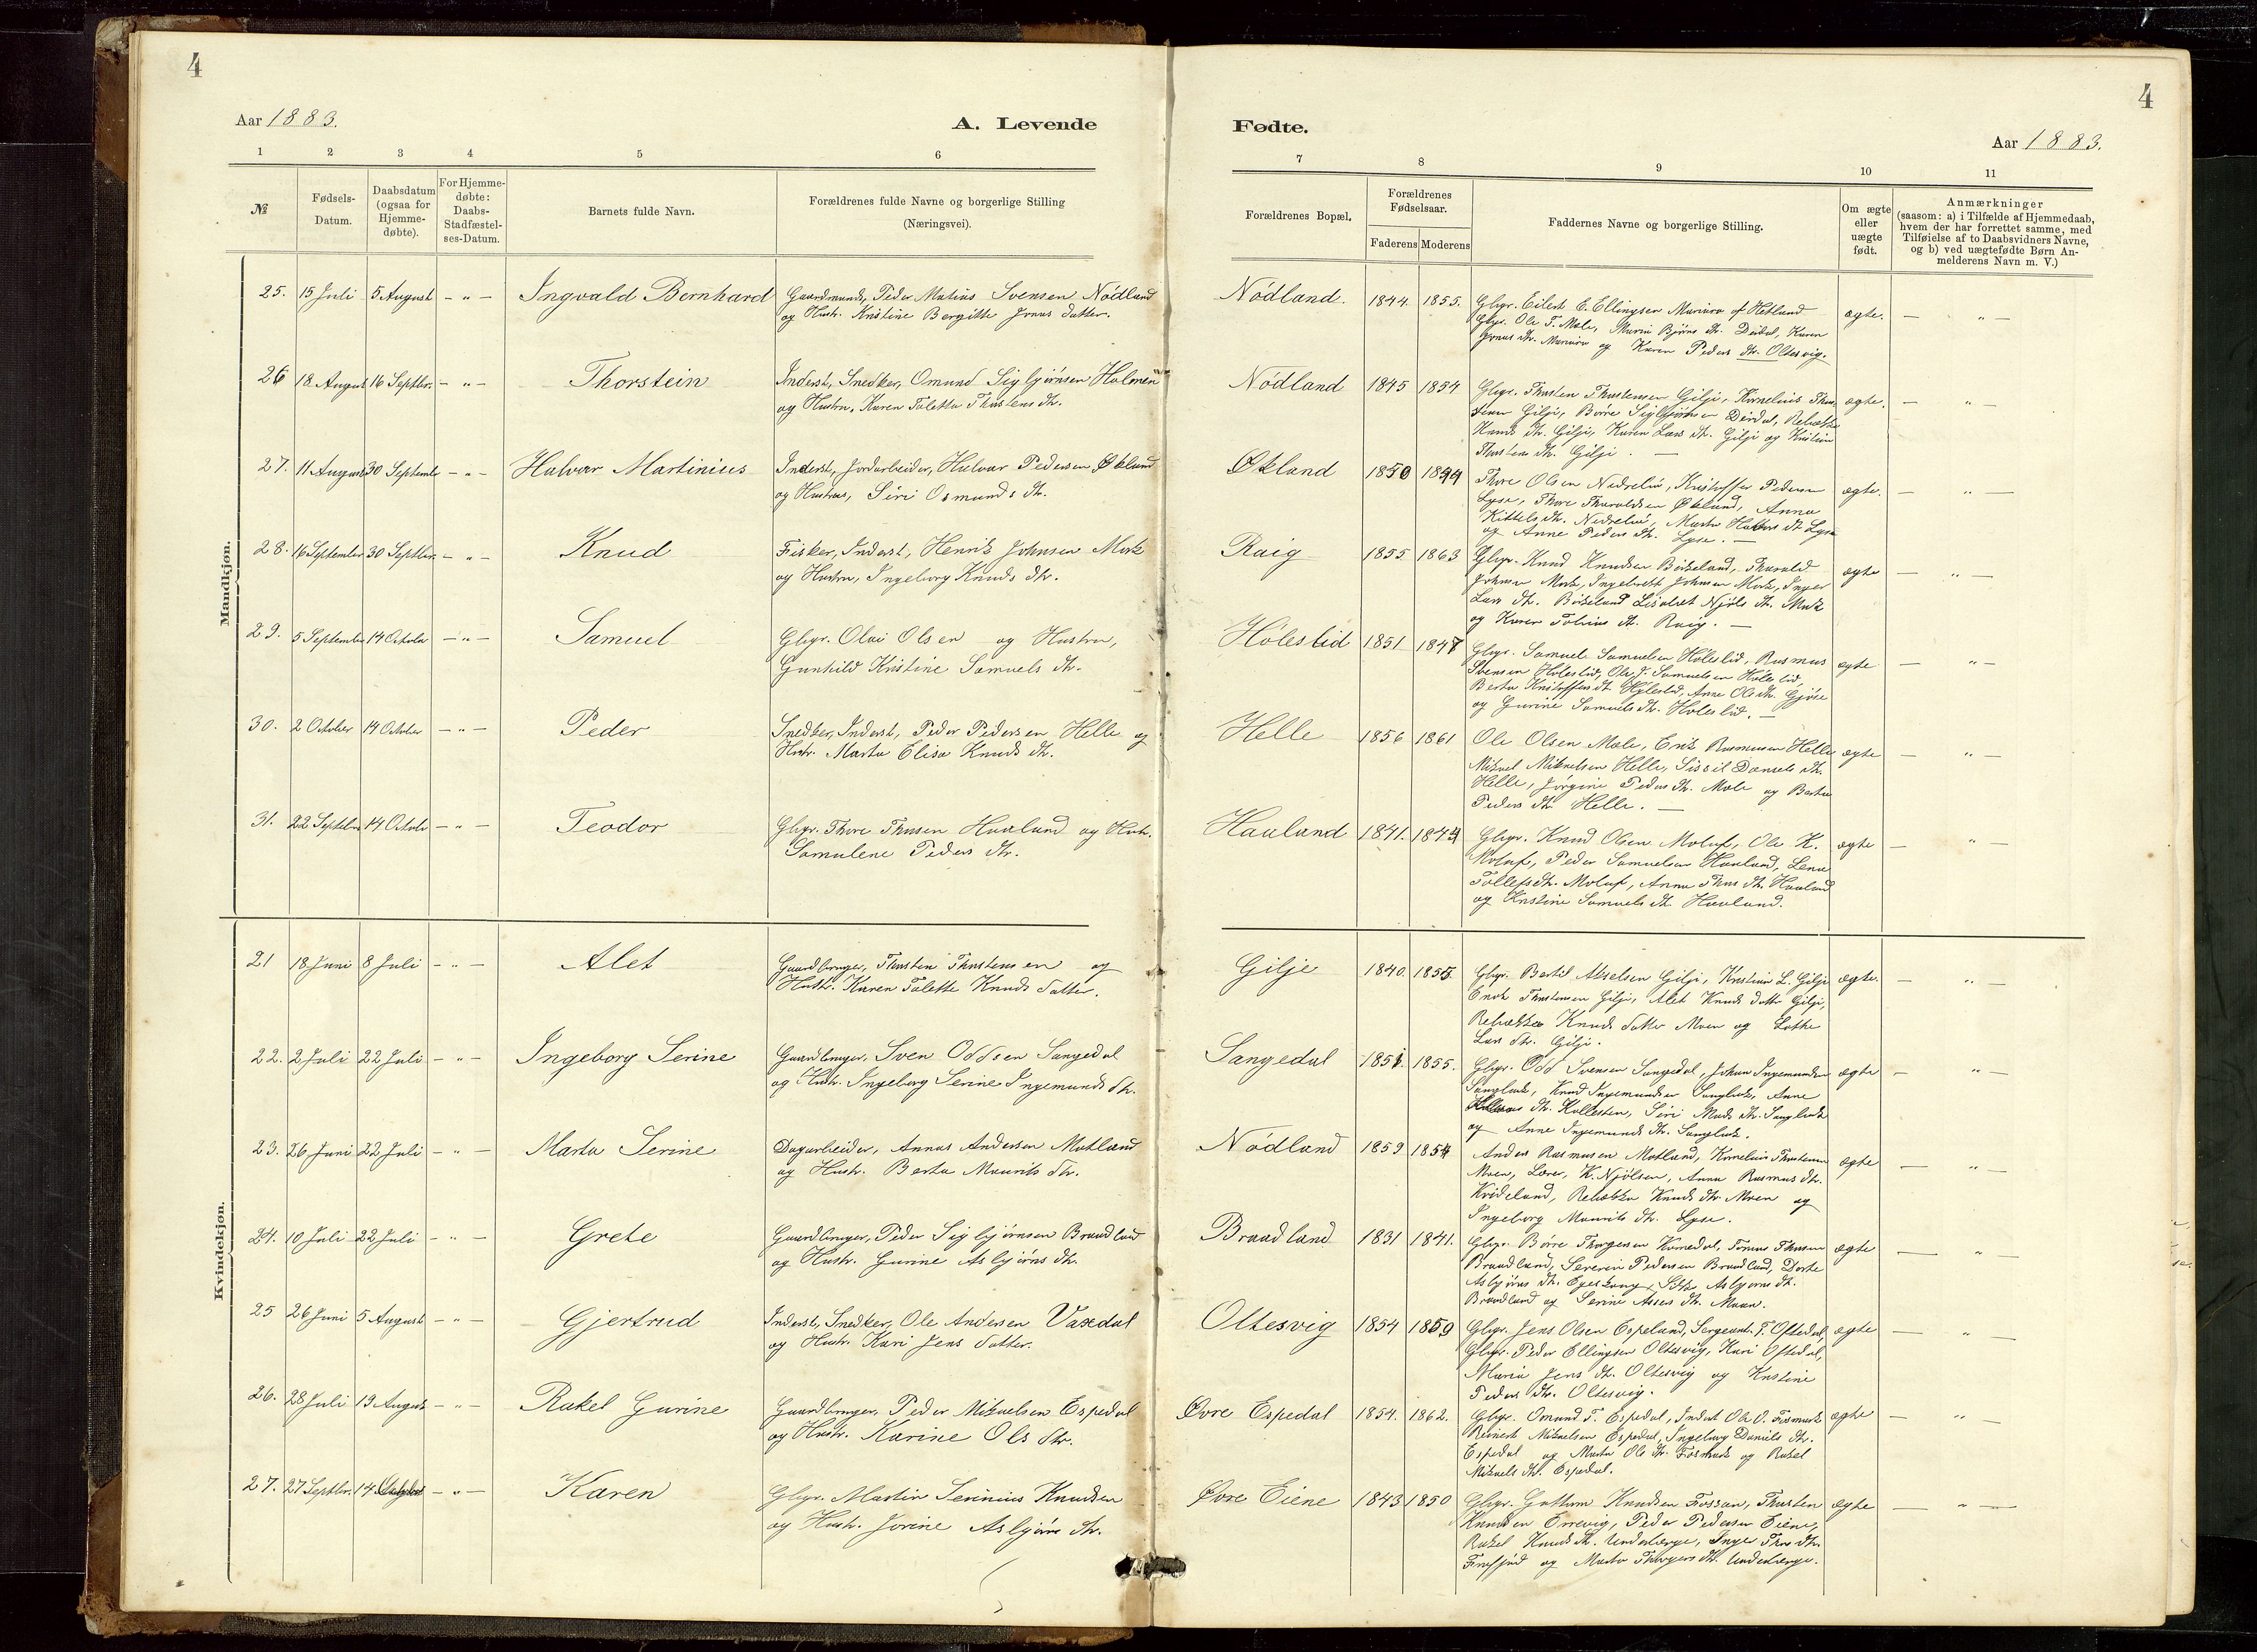 4
Aar 1883.
A. Levende
1 2 3 4 5 6
№
Fødsels-Datum.
Daabsdatum (ogsaa for Hjemme-døbte).
For Hjemme-døbte: Daabs-Stadfæstel-ses-Datum.
Barnets fulde Navn.
Forældrenes fulde Navne og borgerlige Stilling
(Næringsvei).
Mandkjøn.
25. 15 Juli 5 August – „ – Ingvald Bernhard Gaardmand, Peder Matias Svensen Nödland
og Hustr. Kristine Bergitte Jonas Datter.
26 18 August 16 Septbr. – „ – Thorstein Inderst, Snedker, Omund Sigbjörnsen Holmen
og Hustru, Karen Taletta Thorstens dtr.
27. 11 August 30 Septembr – „ – Halvar Martinius Inderst, Jordarbeider, Halvar Pedersen Økland
og Hustru, Siri Osmunds dtr.
28. 16 September 30 Septbr. – „ – Knud Fisker, Inderst, Henrik Johnsen Mork
og Hustru, Ingeborg Knuds dtr.
29. 5 September 14 Octobr – „ – Samuel Gbgr. Olai Olsen og Hustru,
Gunhild Kristine Samuels dtr.
30. 2 October 14 October – „ – Peder Snedker, Inderst, Peder Pedersen Helle og
Hustr. Marta Elisa Knuds dtr.
31. 22 Septbr 14 Octobr – „ – Teodor Gbgr. Thore Thorsen Haaland og Hustr.
Samulene Peders dtr.
Kvindekjøn.
21 18 Juni 8 Juli – „ – Alet Gaardbruger, Thorsten Thorstensen og
Hustr. Karen Talette Knuds Datter.
22. 2 Juli 22 Juli – „ – Ingeborg Serine Gaardbruger, Sven Oddsen Sangedal
og Hustr. Ingeborg Serine Ingemunds dtr.
23. 26 Juni 22 Juli – „ – Marta Serine Dagarbeider, Annas Andersen Motland
og Hustr. Berta Maurits dtr.
24. 10 Juli 22 Juli – „ – Grete Gaardbruger, Peder Sigbjörnsen Braadland
og Hustr. Gurine Asbjörns dtr.
25 26 Juni 5 August – „ – Gjertrud Inderst, Snedker, Ole Andersen Vaxedal
og Hustr. Kari Jens Datter.
26. 28 Juli 19 August – „ – Rakel Gurine Gaardbruger, Peder Mikaelsen Espedal
og Hustr. Karine Ols dtr.
27. 27 Septbr. 14 – „ – Karen Gbgr. Martin Serinius Knudsen
og Hustr. Jorine Asbjörns dtr.
4
Fødte.
Aar 1883.
7 8 9 10 11
Forældrenes Bopæl.
Forældrenes Fødselsaar.
Faderens Moderens
Faddernes Navne og borgerlige Stilling.
Om ægte eller uægte født.
Anmærkninger
(saasom: a) i Tilfælde af Hjemmedaab,
hvem der har forrettet samme, med
Tilføielse af to Daabsvidners Navne,
og b) ved uægtefødte Børn An-
melderens Navn m. V.)
Nödland. 1844. 1855. Gbgr. Eilert E. Ellingsen of Hetland ægte. – „ –
Gbgr. Ole T. Mæle, Maria Björns dtr. Dirdal, Karen
Jonas dtr. og Karen Peders dtr. Oltesvig.
Nödland 1845 1854 Gbgr. Thorsten Thorstensen Gilje, Kornelius Thor- ægte. – „ –
stensen Gilje, Börre Sigbjörnsen Dirdal, Rebekka
Knuds dtr. Gilje, Karen Lars dtr. Gilje og Kristine
Thorstens dtr. Gilje. –
Økland 1850 1844 Thore Olsen Nedrelid, Kristoffer Pedersen ægte. – „ –
Lyse, Thore Thoraldsen Økland, Anna
Kittels dtr. Nedrelid, Marta Halvors dtr Lyse
og Anne Peders dtr. Lyse. –
Raig 1855 1863 Gbgr. Knud Knudsen Björkeland, Thorald ægte – „ –
Johnsen Mork, Ingebrett Johnsen Mork, Inger
Lars dtr. Lisabet Njöls dtr. Mork
og Karen Tobias dtr. Raig. –
Höleslid 1851 1847 Gbgr. Samuel Samuelsen Höleslid, Rasmus ægte – „ –
Svensen Höleslid, Ole J. Samuelsen Höleslid,
Berta Kristoffers dtr Höleslid, Anne Ols dtr. Gjöse
og Gurine Samuels dtr. Höleslid. –
Helle 1856 1861 Ole Olsen Mæle, Erik Rasmussen Helle ægte – „ –
Mikael Mikaelsen Helle, Sissil Daniels dtr.
Helle, Jörgine Peders dtr. Mæle og Berta
Peders dtr Helle. –
Haaland 1841. 1844 Gbgr. Knud Olsen Moluf, Ole K. ægte – „ –
Moluf, Peder Samuelsen Haaland, Lena
Tollefs dtr. Moluf, Anna Thors dtr. Haaland
og Kristine Samuels dtr Haaland.
Gilje 1840. 1855. Gbgr. Bertil Akselsen Gilje, Kristian L. Gilje ægte. – „ –
Enok Thorstensen Gilje, Alet Knuds datter Gilje,
Rebekka Knuds Datter Moen og Lothe
Lars dtr. Gilje.
Sangedal 1851. 1855. Gbgr. Odd Svensen Sangedal, Johan Ingemundsen ægte – „ –
Knud Ingemundsen Anne
dtr. Kallesten, Siri Mads dtr.
og Anne Ingemunds dtr.
Nödland 1859 1854 Anders Rasmusen Motland, Kornelius Thorstensen ægte – „ –
Moen, Lærer, K. Njölsen, Anna Rasmus dtr.
Kvideland, Rebekka Knuds dtr. Moen og
Ingeborg Maurits dtr. Lyse.
Braadland 1831 1841. Gbgr. Börre Thorgersen Komedal, Tomas Thorsen ægte – „ –
Braadland, Severin Pedersen Braadland, Dorte
Asbjörns dtr. Asbjörns dtr.
Braadland og Serine Assers dtr. Moen.
Oltesvig 1854 1859 Gbgr. Jens Olsen Espeland, Sergeant T. Oftedal, ægte – „ –
Gbgr. Peder Ellingsen Oltesvig, Kari Oftedal,
Maria Jens dtr. Oltesvig og Kristine
Peders dtr. Oltesvig.
Øvre Espedal 1854. 1862. Gbgr. Omund T. Espedal, Inderst Ole O. Fosmark ægte – „ –
Reinert Mikaelsen Espedal, Ingeborg Daniels dtr.
Espedal og Marta Ols dtr. Fosmark og Rakel
Mikaels dtr. Espedal.
Øvre Eiene 1843 1850 Gbgr. Guttorm Knudsen Fossan, Thorsten ægte – „ –
Knudsen Errevig, Peder Pedersen Eiene,
Rakel Knuds dtr. Underberge, Inger Thors dtr.
og Marta Thorgers dtr. Underberge.